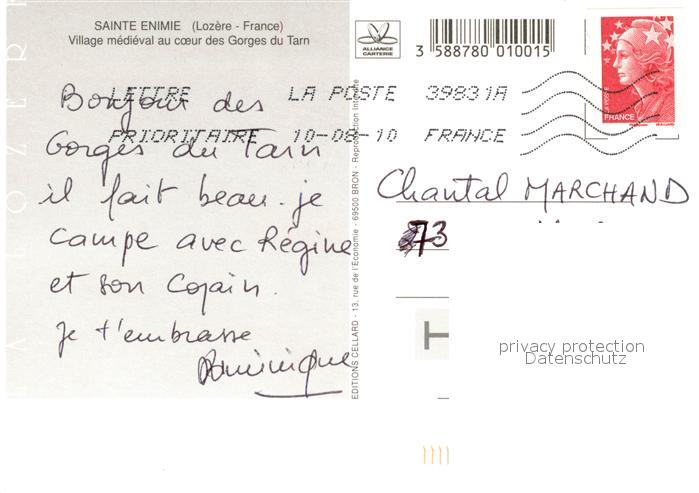 SAINTE ENIMIE (Lozère - France)
Village médiéval au cœur des Gorges du Tarn
ALLIANCE
CARTERIE
3 588780 010015
LETTRE LA POSTE 39831A
PRIORITAIRE 10-08-10 FRANCE
FRANCE
Bonjour des
Gorges du Tarn
il fait beau. je
campe avec Régine
et son Copain.
je t'embrasse
Dominique
EDITIONS CELLARD - 13, rue de l'Economie - 69500 BRON - Reproduction Interdite
Chantal MARCHAND
73
privacy protection
Datenschutz
LOZERE